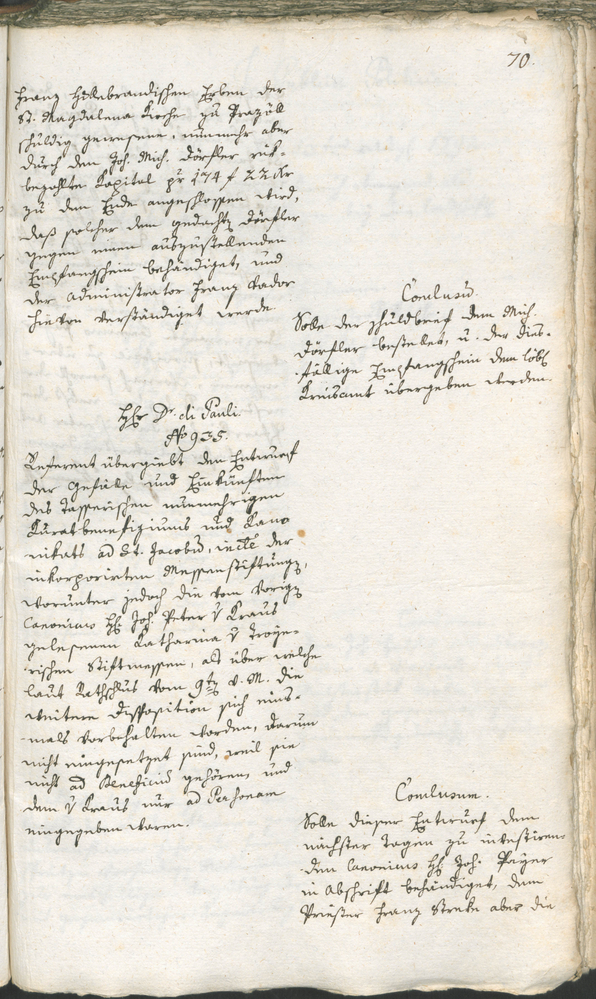 70.
Franz Hillebrandischen Erben der
St. Magdalena Kirche zu Prazöll
schuldig gewesene, nunmehr aber
durch den Joh. Mich. Dörfler rük-
bezahlte Kapital pr 174 f 22 kr
zu dem Ende angeschlossen wird,
daß solcher dem gedachten Dörfler
gegen einen auszustellenden
Empfangschein behändiget, und
der Administrator Franz Kador
hievon verständiget werde.
Conclusum.
Solle der Schuldbrief dem Mich.
Dörfler bestellet, u. der dies-
fällige Empfangschein dem löbl.
Kreisamt übergeben werden.
Hr Dr. di Pauli.
No 935.
Referent übergiebt den Entwurf
der Gefälle und Einkünften
des Tasserischen nunmehrigen
Kuratbenefiziums und Kano
nikats ad St. Jacobum, der
inkorporirten Messenstiftungen,
worunter jedoch die vom vorigen
Canonicus H. Joh. Peter v Kraus
gelesenen Katharina v Troyer-
ischen Stiftmessen, als über welche
laut Rathschluß vom 9ten d. M. die
weitere Disposition sich eins-
mals vorbehalten worden, darum
nicht eingesetzet sind, weil sie
nicht ad Beneficium gehören, und
dem v Kraus nur ad Personam
eingegeben waren.
Conclusum.
Solle dieser Entwurf dem
nächster Tagen zu investiren-
den Canonicus H. Joh. Payer
in Abschrift behändiget, dem
Priester Franz Strele aber die